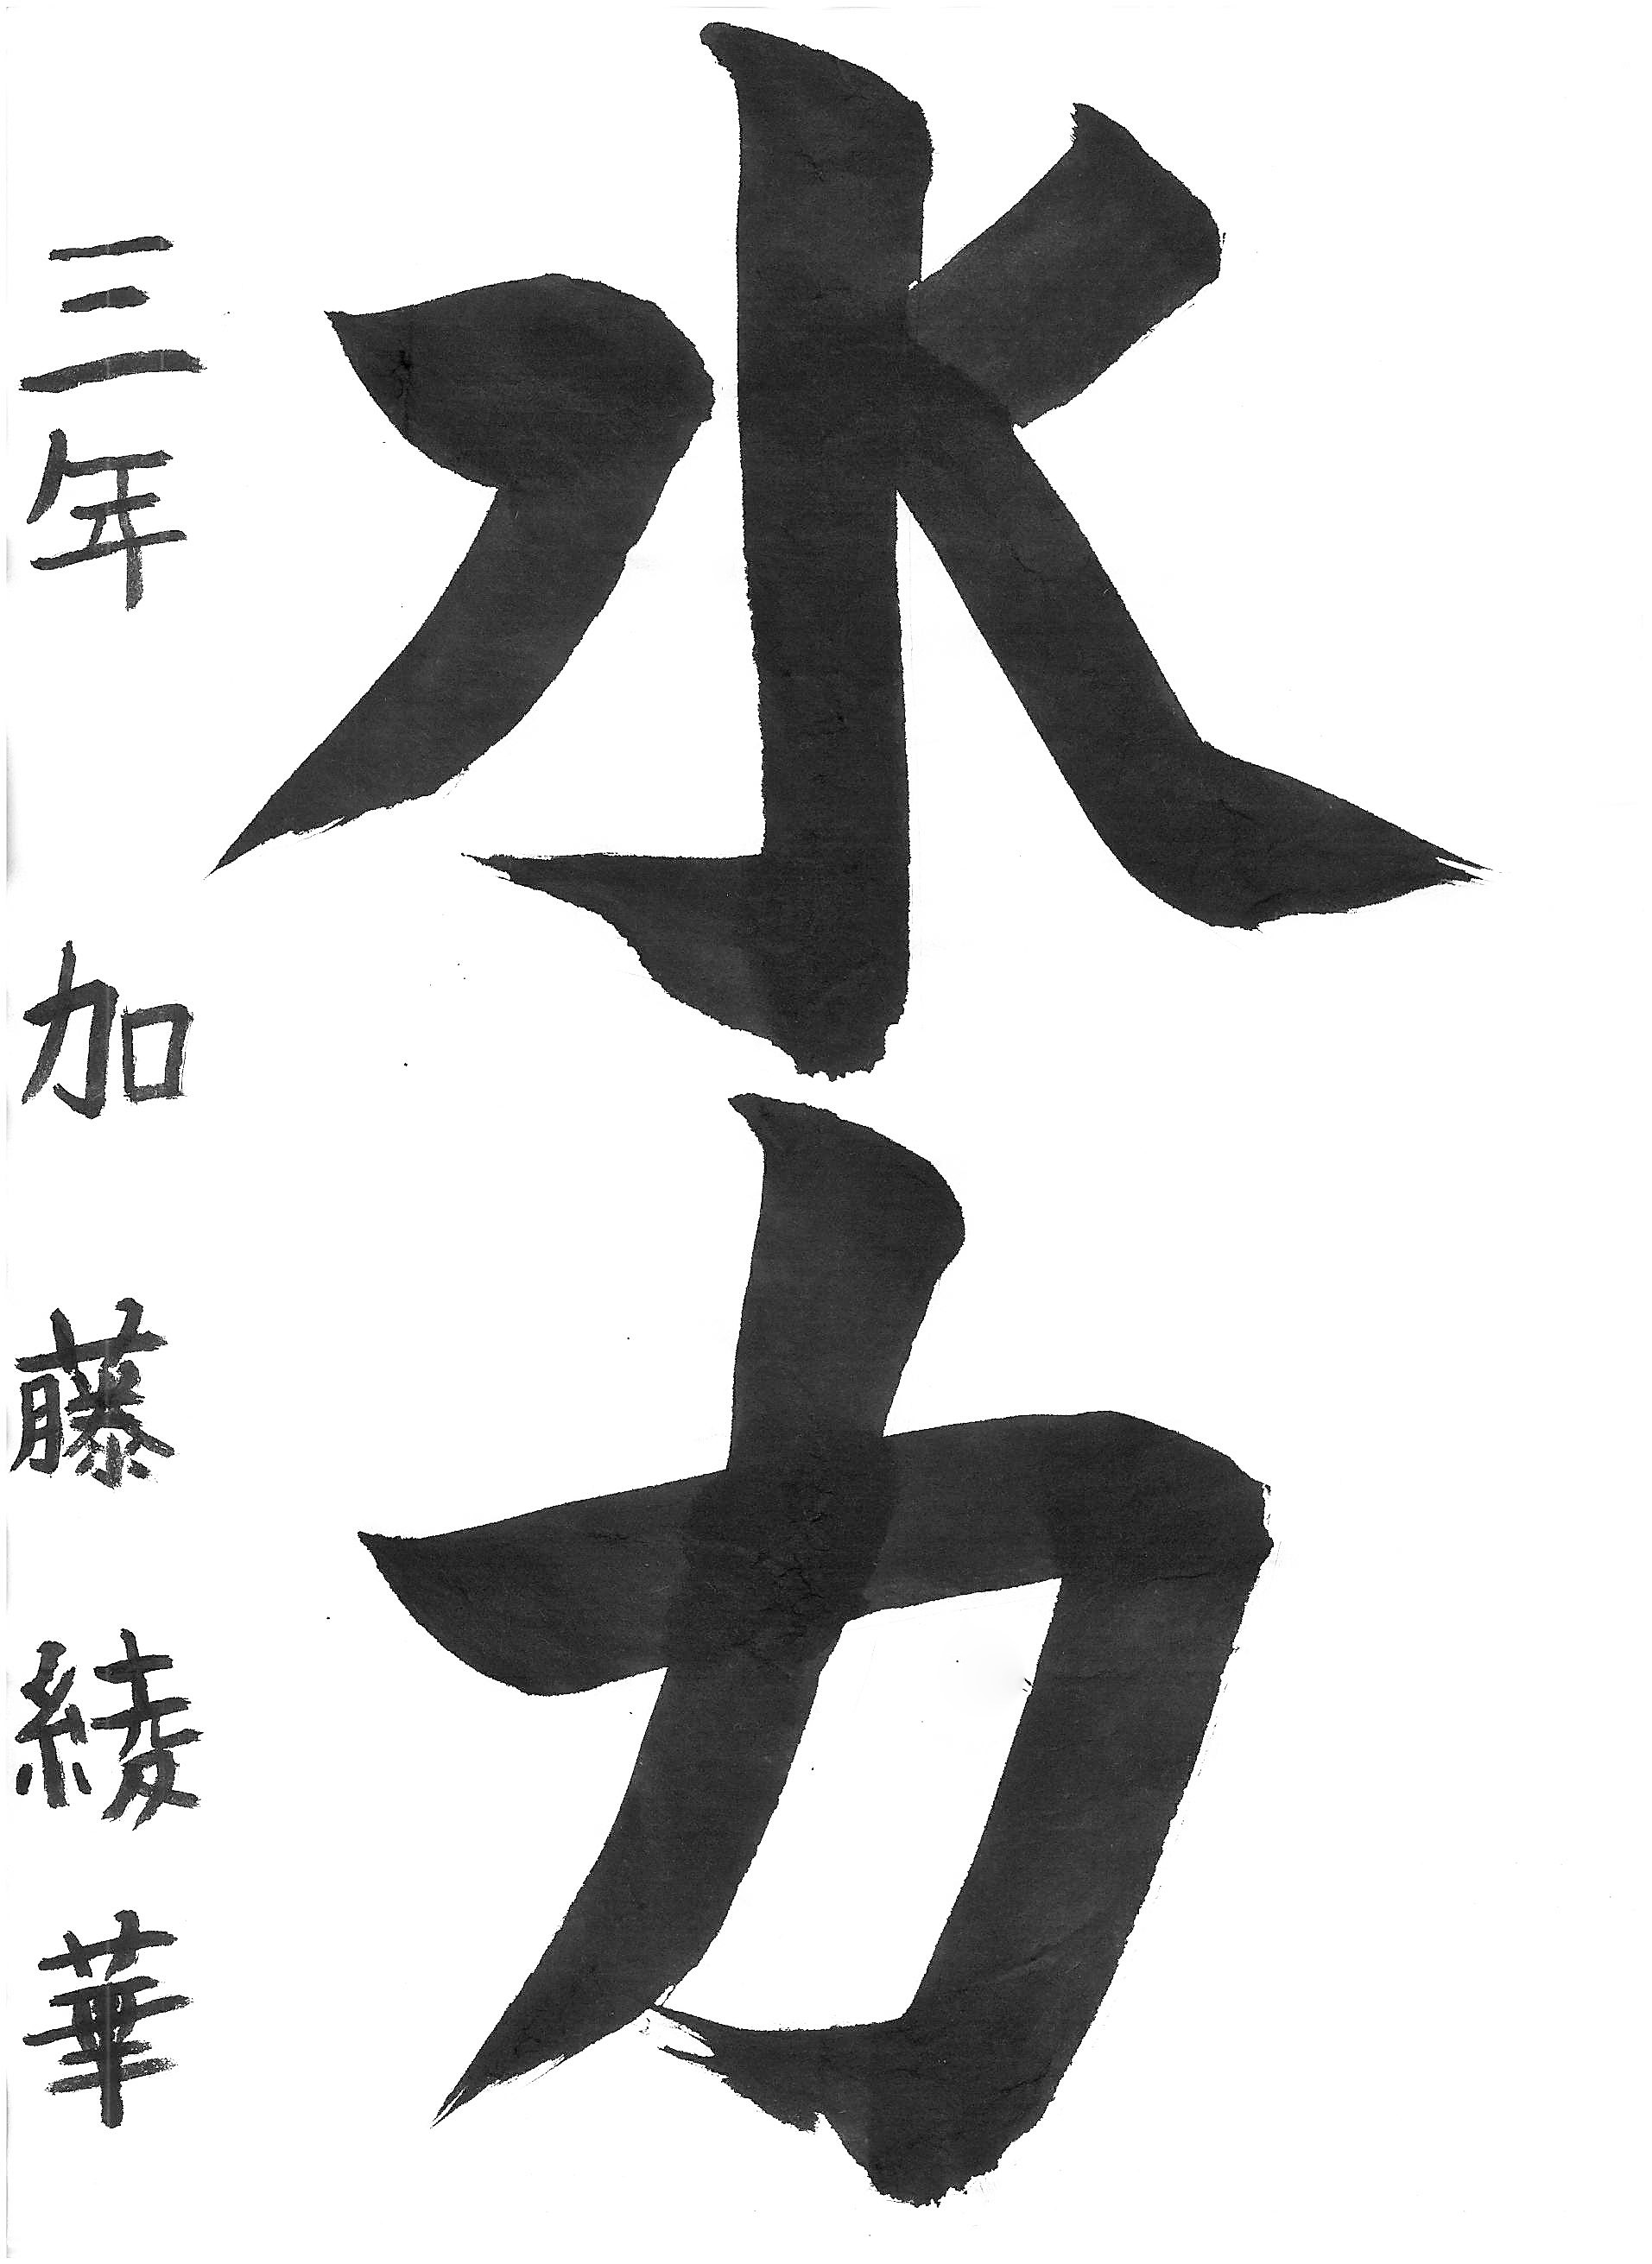 水力
三年 加藤綾華